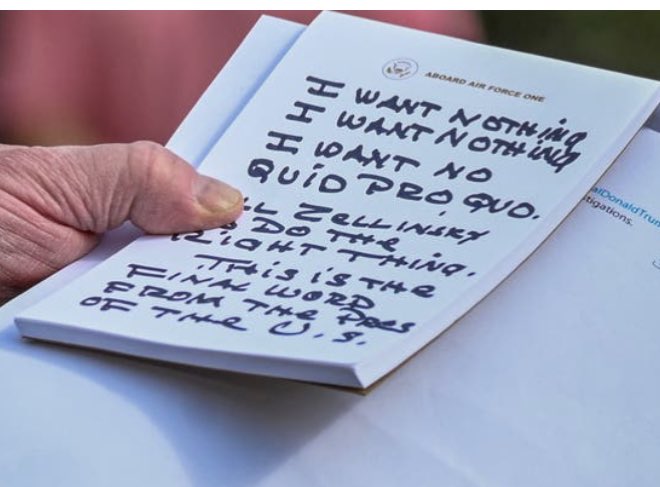 ABOARD AIR FORCE ONE
I WANT NOTHING
I WANT NOTHING
I WANT NO
QUID PRO QUO.
ZELLINSKY
DO THE
RIGHT THING.
THIS IS THE
FINAL WORD
FROM THE PRES
OF THE U.S.
alDonaldTrum
tigations.